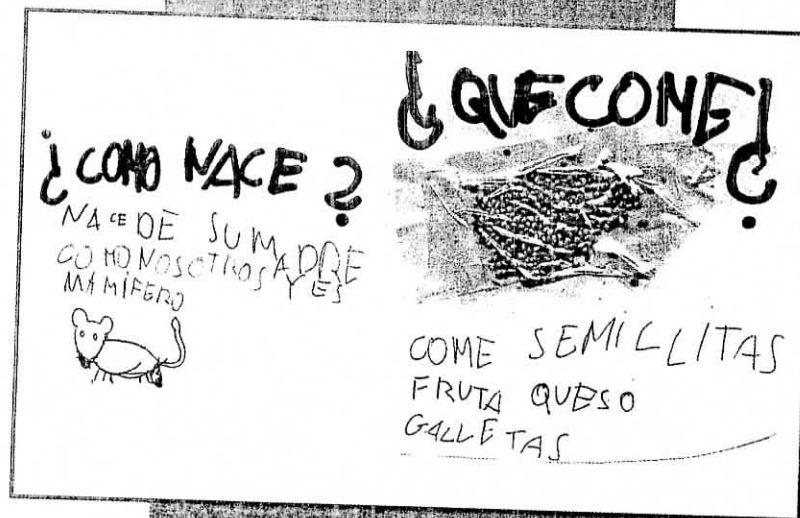 ¿COMO NACE?
NACE DE SU MADRE
COMO NOSOTROS Y ES
MAMÍFERO
¿QUE COME?
COME SEMILLITAS
FRUTA QUESO
GALLETAS